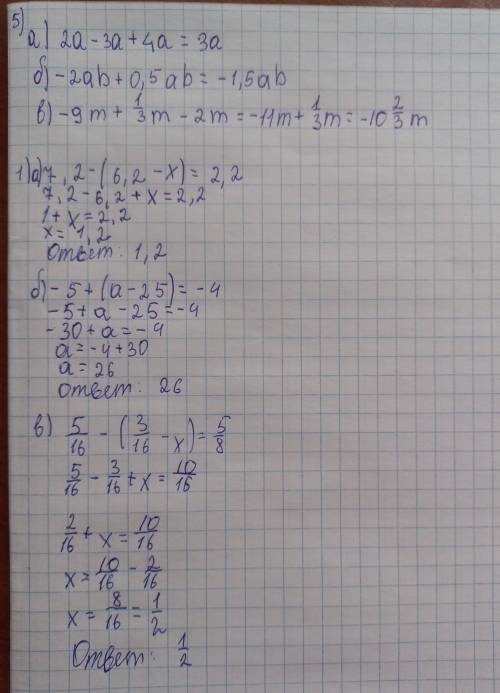 5)
а) 2a - 3a + 4a = 3a
б) -2ab + 0,5ab = -1,5ab
в) -9m + 1/3 m - 2m = -11m + 1/3 m = -10 2/3 m
1) а) 7,2 - (6,2 - x) = 2,2
7,2 - 6,2 + x = 2,2
1 + x = 2,2
x = 1,2
Ответ: 1,2
б) -5 + (a - 25) = -4
-5 + a - 25 = -4
-30 + a = -4
a = -4 + 30
a = 26
Ответ: 26
в) 5/16 - (3/16 - x) = 5/8
5/16 - 3/16 + x = 10/16
2/16 + x = 10/16
x = 10/16 - 2/16
x = 8/16 = 1/2
Ответ: 1/2